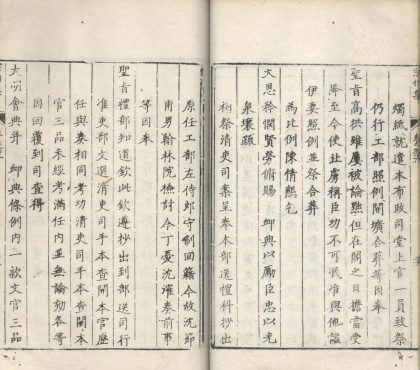 燭紙就遣本布政司堂上官一員致祭
仍行工部照例開壙合葬等因奉
聖旨高拱雖屢被論黜但在閣之日擔當受
降至今使北虜稱臣功不可泯准與他謚
伊妻照例並祭合葬
為比例陳情懇乞
天恩矜憫賢勞俯賜 卹典以勵臣忠以光
泉壤疏
祠祭清吏司案呈奉本部送禮科抄出
原任工部左侍郎守制回籍今故沈節
甫男翰林院檢討今丁憂沈㴶奏前事
等因奉
聖旨禮部知道欽此欽遵抄出到部送司行
准吏部文選清吏司手本查開本官歷
任與奏相同考功清吏司手本查開本
官三品未經考滿任內並無論劾各等
因回覆到司查得
大明會典并 卹典條例內一款文官三品